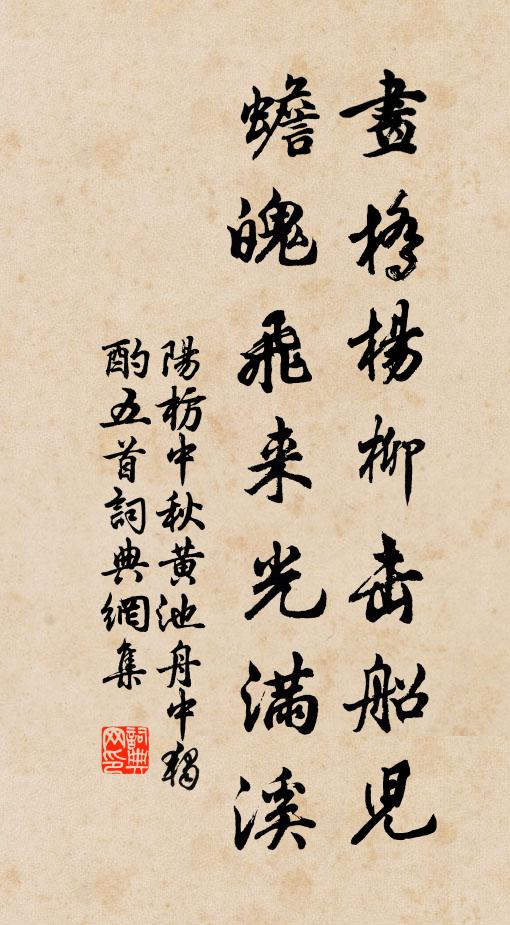 畫橋楊柳击船児
蟾魄飛来光滿溪
陽枋中秋黄池舟中獨
酌五首詞典網集
詞典网印